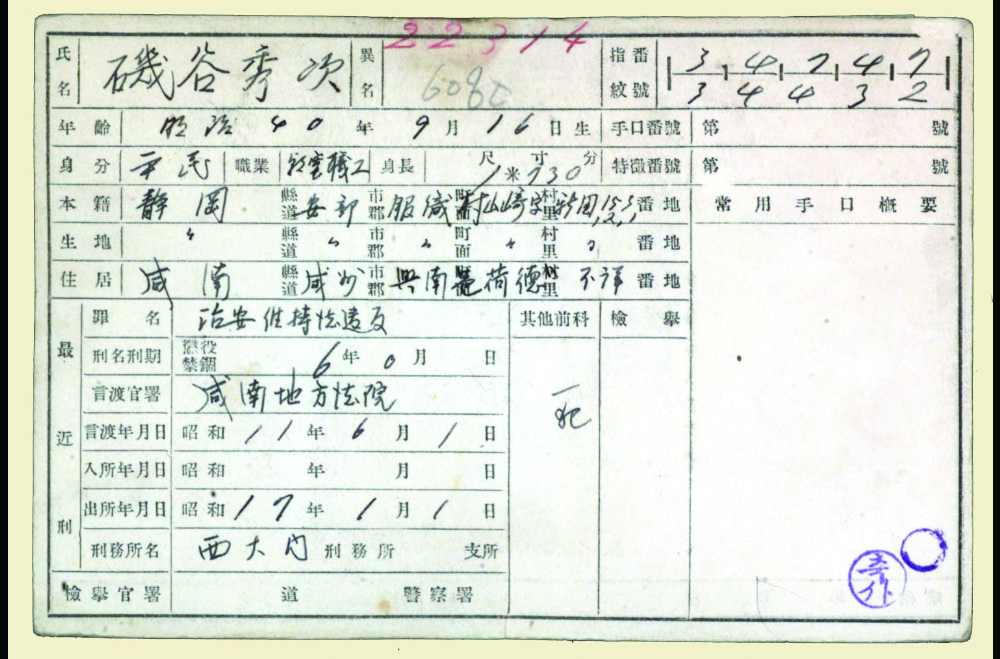 22314
氏名 磯谷秀次 異名 指紋番號 3 4 7 4 7
3 4 4 3 2
年齡 明治 40 年 9 月 16 日生 手口番號 第 號
身分 平民 職業 職工 身長 尺 寸 分 1米730 特徵番號 第 號
本籍 靜岡 縣道 安部 市郡 服織 町面 村里 番地 常用手口槪要
生地 〃 縣道 〃 市郡 〃 町面 〃 村里 〃 番地
住居 咸南 縣道 咸州 市郡 興南 荷德 里 不詳 番地
最近刑
罪名 治安維持法違反 其他前科 檢擧
刑名刑期 懲役禁錮 6 年 0 月 日
言渡官署 咸南地方法院
言渡年月日 昭和 11 年 6 月 1 日
入所年月日 昭和 年 月 日
出所年月日 昭和 17 年 1 月 1 日
刑務所名 西大門 刑務所 支所
檢擧官署 道 警察署